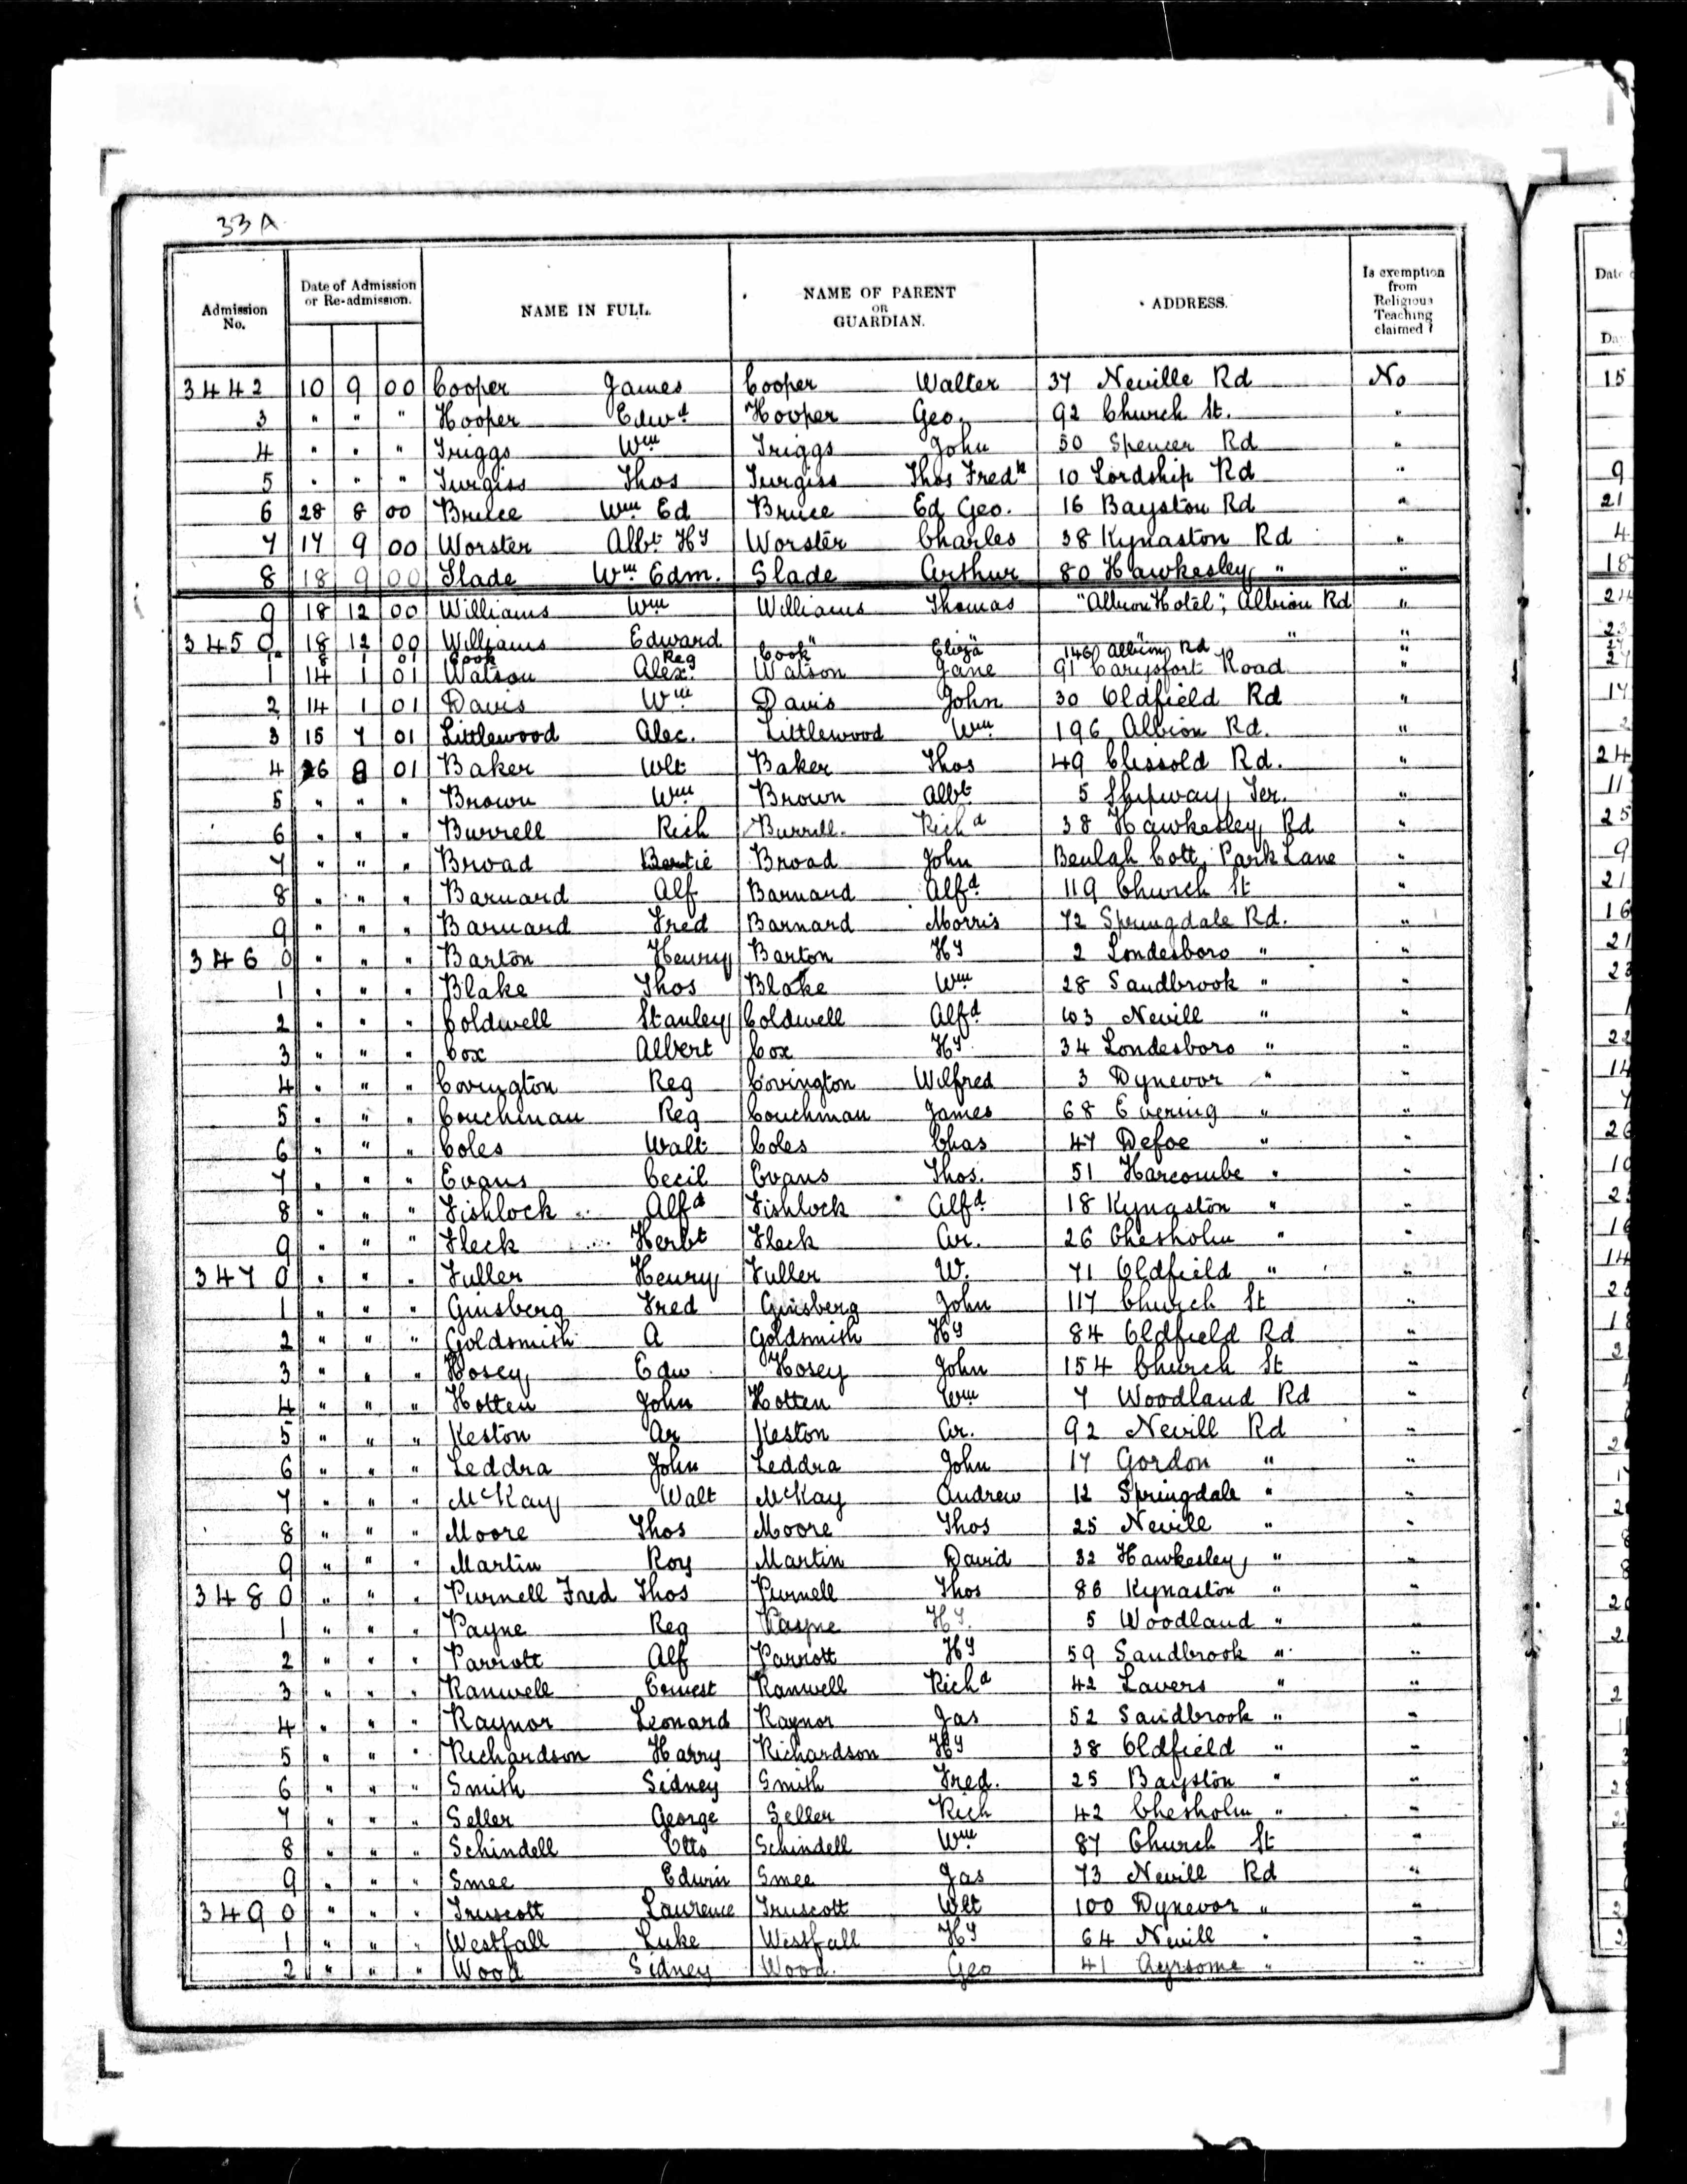 33A
Admission No. Date of Admission or Re-admission. NAME IN FULL. NAME OF PARENT OR GUARDIAN. ADDRESS. Is exemption from Religious Teaching claimed?
3442 10 9 00 Cooper James Cooper Walter 37 Neville Rd No
3 " " " Hooper Edwd Hooper Geo. 92 Church St. "
4 " " " Triggs Wm Triggs John 50 Spencer Rd "
5 " " " Turgiss Thos Turgiss Thos Fredk 10 Lordship Rd "
6 28 8 00 Bruce Wm Ed Bruce Ed Geo. 16 Bayston Rd "
7 17 9 00 Worster Albt Hy Worster Charles 38 Kynaston Rd "
8 18 9 00 Slade Wm Edm. Slade Arthur 80 Hawkesley " "
9 18 12 00 Williams Wm Williams Thomas "Albion Hotel", Albion Rd "
3450 18 12 00 Williams Edward " " " " "
1a 8 1 01 Cook Reg Cook Eliza 146 Albion Rd "
1 14 1 01 Watson Alexr Watson Jane 91 Carysfort Road "
2 14 1 01 Davis Wm Davis John 30 Oldfield Rd "
3 15 7 01 Littlewood Alec. Littlewood Wm 196 Albion Rd. "
4 26 8 01 Baker Wlt Baker Thos 49 Clissold Rd. "
5 " " " Brown Wm Brown Albt 5 Shipway Ter. "
6 " " " Burrell Rich Burrell. Richd 38 Hawkesley Rd "
7 " " " Broad Bertie Broad John Beulah Cott, Park Lane "
8 " " " Barnard Alf Barnard Alfd 119 Church St "
9 " " " Barnard Fred Barnard Morris 72 Springdale Rd. "
3460 " " " Barton Henry Barton Hy 2 Londesboro " "
1 " " " Blake Thos Blake Wm 28 Sandbrook " "
2 " " " Coldwell Stanley Coldwell Alfd 103 Nevill " "
3 " " " Cox Albert Cox Hy 34 Londesboro " "
4 " " " Covington Reg Covington Wilfred 3 Dynevor " "
5 " " " Couchman Reg Couchman James 68 Evering " "
6 " " " Coles Walt Coles Chas 47 Defoe " "
7 " " " Evans Cecil Evans Thos. 51 Harcombe " "
8 " " " Fishlock Alfd Fishlock Alfd 18 Kynaston " "
9 " " " Fleck Herbt Fleck Ar. 26 Chesholm " "
3470 " " " Fuller Henry Fuller W. 71 Oldfield " "
1 " " " Ginsberg Fred Ginsberg John 117 Church St "
2 " " " Goldsmith A Goldsmith Hy 84 Oldfield Rd "
3 " " " Hosey Edw Hosey John 154 Church St "
4 " " " Hotten John Hotten Wm 7 Woodland Rd "
5 " " " Keston Ar Keston Ar. 92 Nevill Rd "
6 " " " Leddra John Leddra John 17 Gordon " "
7 " " " McKay Walt McKay Andrew 12 Springdale " "
8 " " " Moore Thos Moore Thos 25 Nevill " "
9 " " " Martin Roy Martin David 32 Hawkesley " "
3480 " " " Purnell Fred Thos Purnell Thos 86 Kynaston " "
1 " " " Payne Reg Payne Hy. 5 Woodland " "
2 " " " Parrott Alf Parrott Hy 59 Sandbrook " "
3 " " " Ranwell Ernest Ranwell Richd 42 Lavers " "
4 " " " Raynor Leonard Raynor Jas 52 Sandbrook " "
5 " " " Richardson Harry Richardson Hy 38 Oldfield " "
6 " " " Smith Sidney Smith Fred. 25 Bayston " "
7 " " " Seller George Seller Rich 42 Chesholm " "
8 " " " Schindell Otto Schindell Wm 87 Church St "
9 " " " Smee Edwin Smee Jas 73 Nevill Rd "
3490 " " " Truscott Laurence Truscott Wlt 100 Dynevor " "
1 " " " Westfall Luke Westfall Hy 64 Nevill " "
2 " " " Wood Sidney Wood. Geo 41 Ayrsome " "